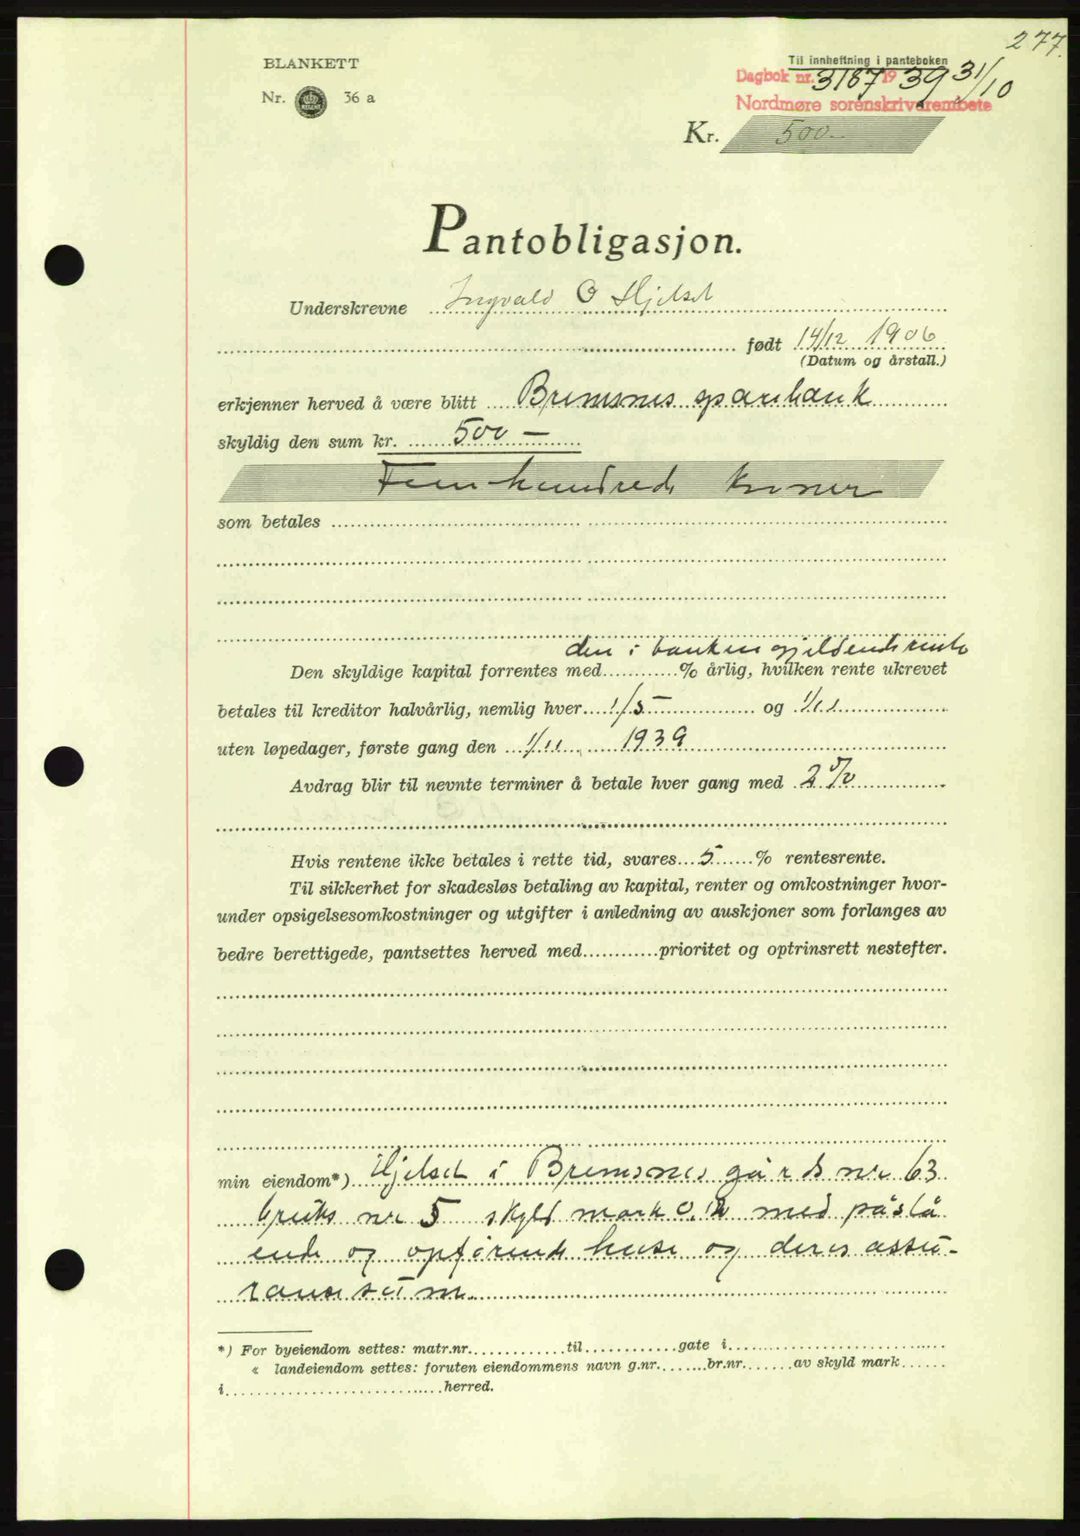 277.
BLANKETT
Nr. 36 a
Til innheftning i panteboken
Dagbok nr. 3187 1939 31/10
Nordmøre sorenskriverembete
Kr. 500-
Pantobligasjon.
Underskrevne Ingvald O Hjelset
født 14/12 1906
(Datum og årstall.)
erkjenner herved å være blitt Bremsnes sparebank
skyldig den sum kr. 500 -
Femhundrede kroner
som betales
den i banken gjeldende rente
Den skyldige kapital forrentes med % årlig, hvilken rente ukrevet
betales til kreditor halvårlig, nemlig hver 1/5 - og 1/11
uten løpedager, første gang den 1/11 1939
Avdrag blir til nevnte terminer å betale hver gang med 2%
Hvis rentene ikke betales i rette tid, svares 5 % rentesrente.
Til sikkerhet for skadesløs betaling av kapital, renter og omkostninger hvor-
under opsigelsesomkostninger og utgifter i anledning av auskjoner som forlanges av
bedre berettigede, pantsettes herved med prioritet og optrinsrett nestefter.
min eiendom*) Hjelset i Bremsnes gårds nr 63
bruks nr 5 skyld mark 0,12 med påstå
ende og opførende huse og deres assu-
ranse sum.
*) For byeiendom settes: matr.nr. til gate i
« landeiendom settes: foruten eiendommens navn g.nr. br.nr. av skyld mark
i herred.